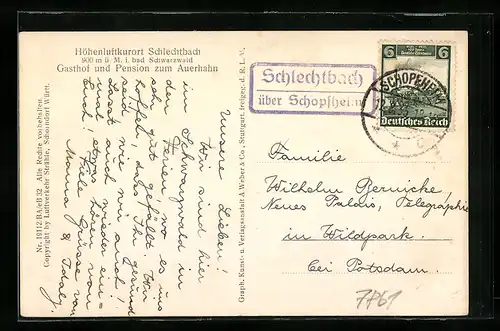 Höhenluftkurort Schlechtbach
900 m ü M. i. bad Schwarzwald
Gasthof und Pension zum Auerhahn
Nr. 19112 BA rB 32 Alle Rechte vorbehalten
Copyright by Luftverkehr Strähle, Schorndorf Württ.
Unsere Lieben!
Wir sind hier
im Schwarzwald in
den Ferien, wo es uns
sehr gut gefällt. Wir
hoffen, daß Ihr gesund
seid, wie wir auch!
Lasst auch wieder ein-
mal etwas hören von
Euch! Viele Grüsse von
Manna &
Graph. Kunst- u. Verlagsanstalt A Weber & Co., Stuttgart, freigeg. d. R. L. V.
Schlechtbach
über Schopfheim
6 6
SCHOPFHEIM
Deutsches Reich
Familie
Wilhelm Pernicke
Neues Palais, Telegraphie
in Wildpark.
bei Potsdam.
7761